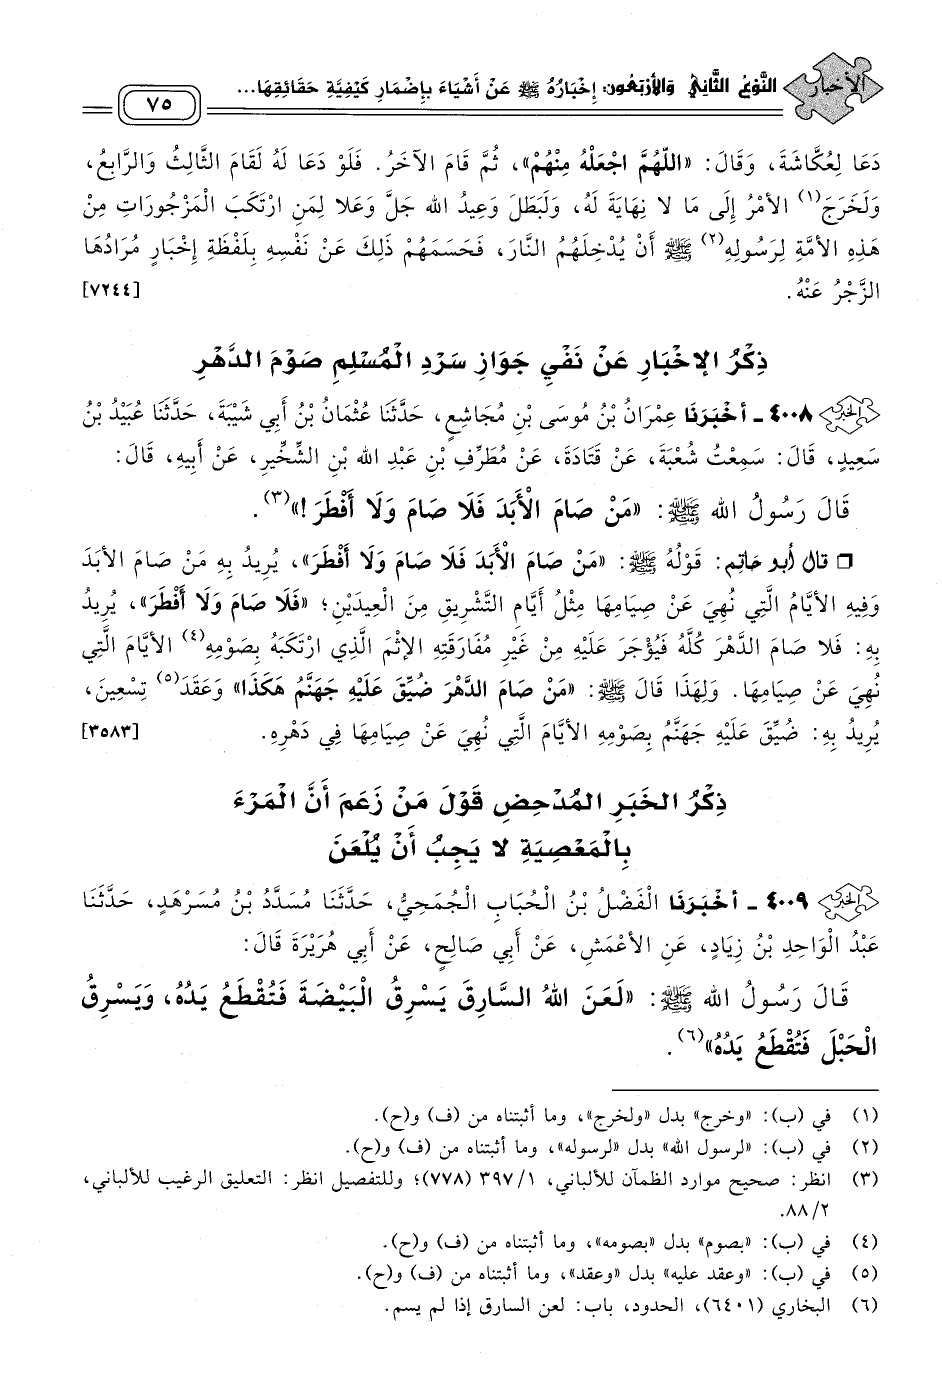 الأخبار
النَّوْعُ الثَّانِي وَالأَرْبَعُونَ: إِخْبَارُهُ ﷺ عَنْ أَشْيَاءَ بِإِضْمَارِ كَيْفِيَّةِ حَقَائِقِهَا...
٧٥
دَعَا لِعُكَّاشَةَ، وَقَالَ: «اللّهُمَّ اجْعَلْهُ مِنْهُمْ»، ثُمَّ قَامَ الآخَرُ. فَلَوْ دَعَا لَهُ لَقَامَ الثَّالِثُ وَالرَّابِعُ،
وَلَخَرَجَ(١) الأَمْرُ إِلَى مَا لا نِهَايَةَ لَهُ، وَلَبَطَلَ وَعِيدُ اللهِ جَلَّ وَعَلا لِمَنِ ارْتَكَبَ الْمَزْجُورَاتِ مِنْ
هَذِهِ الأُمَّةِ لِرَسُولِهِ(٢) ﷺ أَنْ يُدْخِلَهُمُ النَّارَ، فَحَسَمَهُمْ ذَلِكَ عَنْ نَفْسِهِ بِلَفْظَةِ إِخْبَارٍ مُرَادُهَا
الزَّجْرُ عَنْهُ. [٧٢٤٤]
ذِكْرُ الإِخْبَارِ عَنْ نَفْيِ جَوَازِ سَرْدِ الْمُسْلِمِ صَوْمَ الدَّهْرِ
٤٠٠٨ ـ أَخْبَرَنَا عِمْرَانُ بْنُ مُوسَى بْنِ مُجَاشِعٍ، حَدَّثَنَا عُثْمَانُ بْنُ أَبِي شَيْبَةَ، حَدَّثَنَا عُبَيْدُ بْنُ
سَعِيدٍ، قَالَ: سَمِعْتُ شُعْبَةَ، عَنْ قَتَادَةَ، عَنْ مُطَرِّفِ بْنِ عَبْدِ اللهِ بْنِ الشِّخِّيرِ، عَنْ أَبِيهِ، قَالَ:
قَالَ رَسُولُ اللهِ ﷺ: «مَنْ صَامَ الْأَبَدَ فَلَا صَامَ وَلَا أَفْطَرَ!»(٣).
❒ قَالَ أَبو حَاتِم: قَوْلُهُ ﷺ: «مَنْ صَامَ الْأَبَدَ فَلَا صَامَ وَلَا أَفْطَرَ»، يُرِيدُ بِهِ مَنْ صَامَ الأَبَدَ
وَفِيهِ الأَيَّامُ الَّتِي نُهِيَ عَنْ صِيَامِهَا مِثْلُ أَيَّامِ التَّشْرِيقِ مِنَ الْعِيدَيْنِ؛ «فَلَا صَامَ وَلَا أَفْطَرَ»، يُرِيدُ
بِهِ: فَلا صَامَ الدَّهْرَ كُلَّهُ فَيُؤْجَرَ عَلَيْهِ مِنْ غَيْرِ مُفَارَقَتِهِ الإِثْمَ الَّذِي ارْتَكَبَهُ بِصَوْمِهِ(٤) الأَيَّامَ الَّتِي
نُهِيَ عَنْ صِيَامِهَا. وَلِهَذَا قَالَ ﷺ: «مَنْ صَامَ الدَّهْرَ ضُيِّقَ عَلَيْهِ جَهَنَّمُ هَكَذَا» وَعَقَدَ(٥) تِسْعِينَ،
يُرِيدُ بِهِ: ضُيِّقَ عَلَيْهِ جَهَنَّمُ بِصَوْمِهِ الأَيَّامَ الَّتِي نُهِيَ عَنْ صِيَامِهَا فِي دَهْرِهِ. [٣٥٨٣]
ذِكْرُ الخَبَرِ المُدْحِضِ قَوْلَ مَنْ زَعَمَ أَنَّ الْمَرْءَ
بِالْمَعْصِيَةِ لا يَجِبُ أَنْ يُلْعَنَ
٤٠٠٩ ـ أَخْبَرَنَا الْفَضْلُ بْنُ الْحُبَابِ الْجُمَحِيُّ، حَدَّثَنَا مُسَدَّدُ بْنُ مُسَرْهَدٍ، حَدَّثَنَا
عَبْدُ الْوَاحِدِ بْنُ زِيَادٍ، عَنِ الأَعْمَشِ، عَنْ أَبِي صَالِحٍ، عَنْ أَبِي هُرَيْرَةَ قَالَ:
قَالَ رَسُولُ اللهِ ﷺ: «لَعَنَ اللهُ السَّارِقَ يَسْرِقُ الْبَيْضَةَ فَتُقْطَعُ يَدُهُ، وَيَسْرِقُ
الْحَبْلَ فَتُقْطَعُ يَدُهُ»(٦).
(١) في (ب): «وخرج» بدل «ولخرج»، وما أثبتناه من (ف) و(ح).
(٢) في (ب): «لرسول الله» بدل «لرسوله»، وما أثبتناه من (ف) و(ح).
(٣) انظر: صحيح موارد الظمآن للألباني، ١/ ٣٩٧ (٧٧٨)؛ وللتفصيل انظر: التعليق الرغيب للألباني،
٢/ ٨٨.
(٤) في (ب): «بصوم» بدل «بصومه»، وما أثبتناه من (ف) و(ح).
(٥) في (ب): «وعقد عليه» بدل «وعقد»، وما أثبتناه من (ف) و(ح).
(٦) البخاري (٦٤٠١)، الحدود، باب: لعن السارق إذا لم يسم.